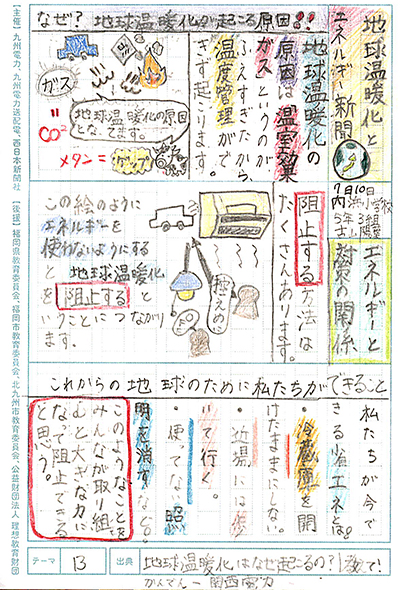 地球温暖化と
エネルギー新聞
7月10日
内浜小学校
5年3組
エネルギーと
益炎の関係
なぜ?地球温暖化が起こる原因!!
地球温暖化の
原因は温室効果
ガスというのが
ふえすぎたから、
温度管理がで
きず起こります。
ガス
地球温暖化の原因
となってます。
CO²
メタン=ゲップ
阻止する方法は
たくさんあります。
控えめに
この絵のように
エネルギーを
使わないようにする
と地球温暖化
を阻止すると
いうことにつながり
ます。
これからの地球のために私たちができること
私たちが今で
きる省エネとは。
・冷蔵庫を開
けたままにしない。
・近場には歩
いて行く。
・使ってない照
明を消すなど。
このようなことを
みんなが取り組
むと大きな力に
なって阻止できる
と思う。
テーマ
B
出典
地球温暖化はなぜ起こるの?!教えて!
かんでんー関西電力
【主催】九州電力、九州電力送配電、西日本新聞社
【後援】福岡県教育委員会、福岡市教育委員会、北九州市教育委員会、公益財団法人 理想教育財団